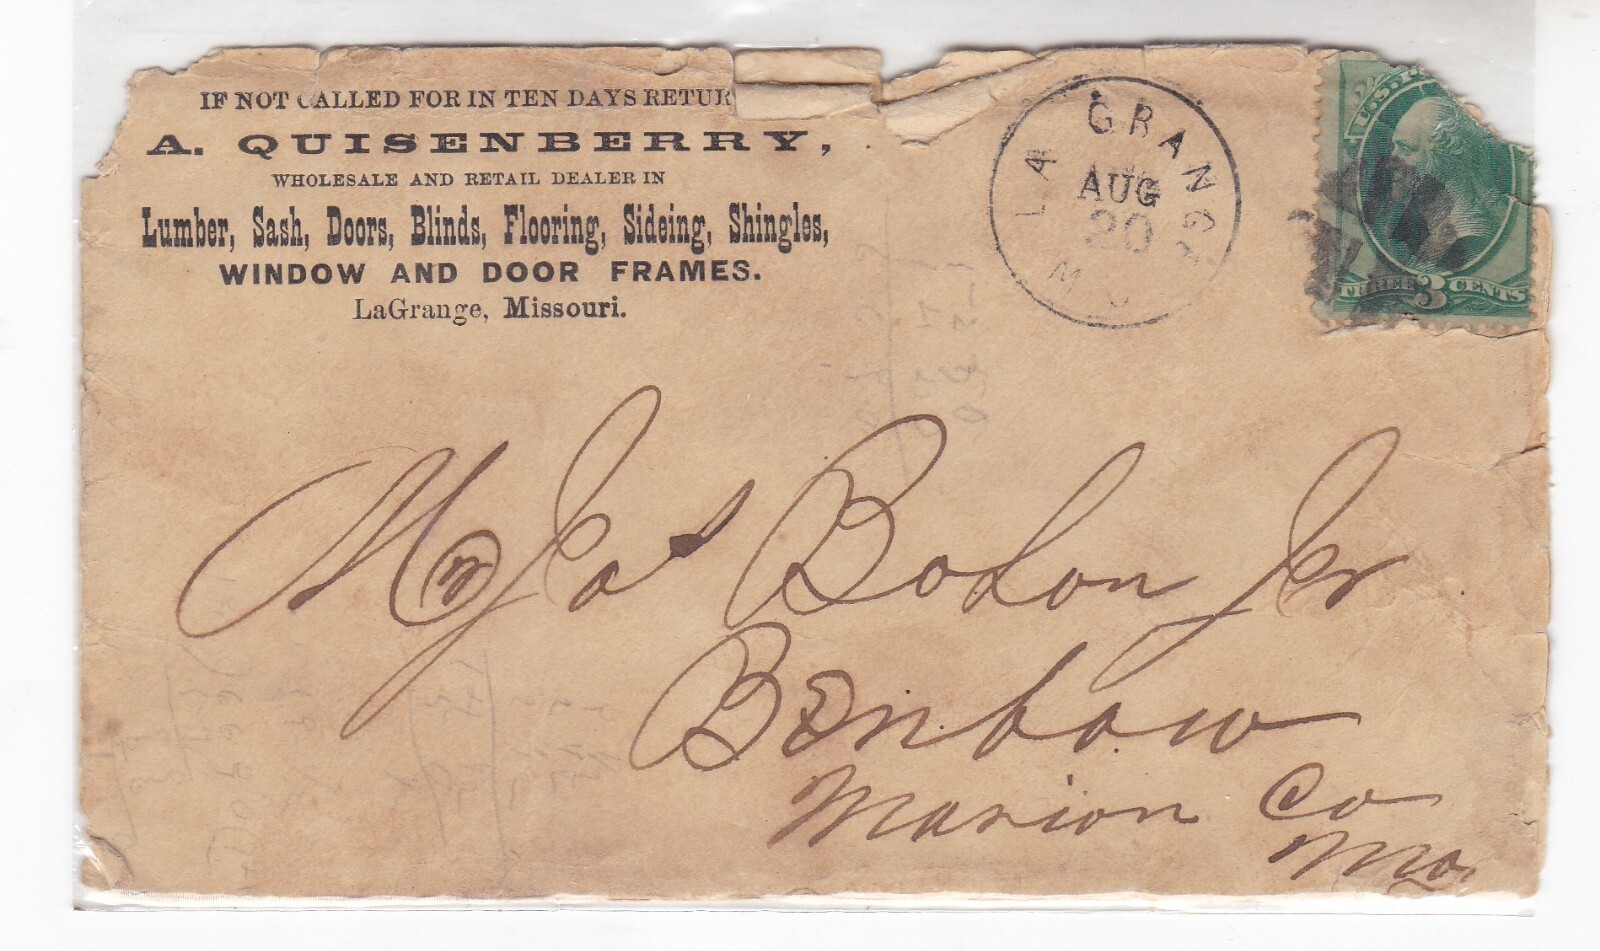 IF NOT CALLED FOR IN TEN DAYS RETUR
A. QUISENBERRY,
WHOLESALE AND RETAIL DEALER IN
Lumber, Sash, Doors, Blinds, Flooring, Sideing, Shingles,
WINDOW AND DOOR FRAMES.
LaGrange, Missouri.
LA GRANGE
AUG
20
MO
U.S. P
THREE 3 CENTS
Mr Jas Bodon Jr
Benbow
Marion Co
Mo.